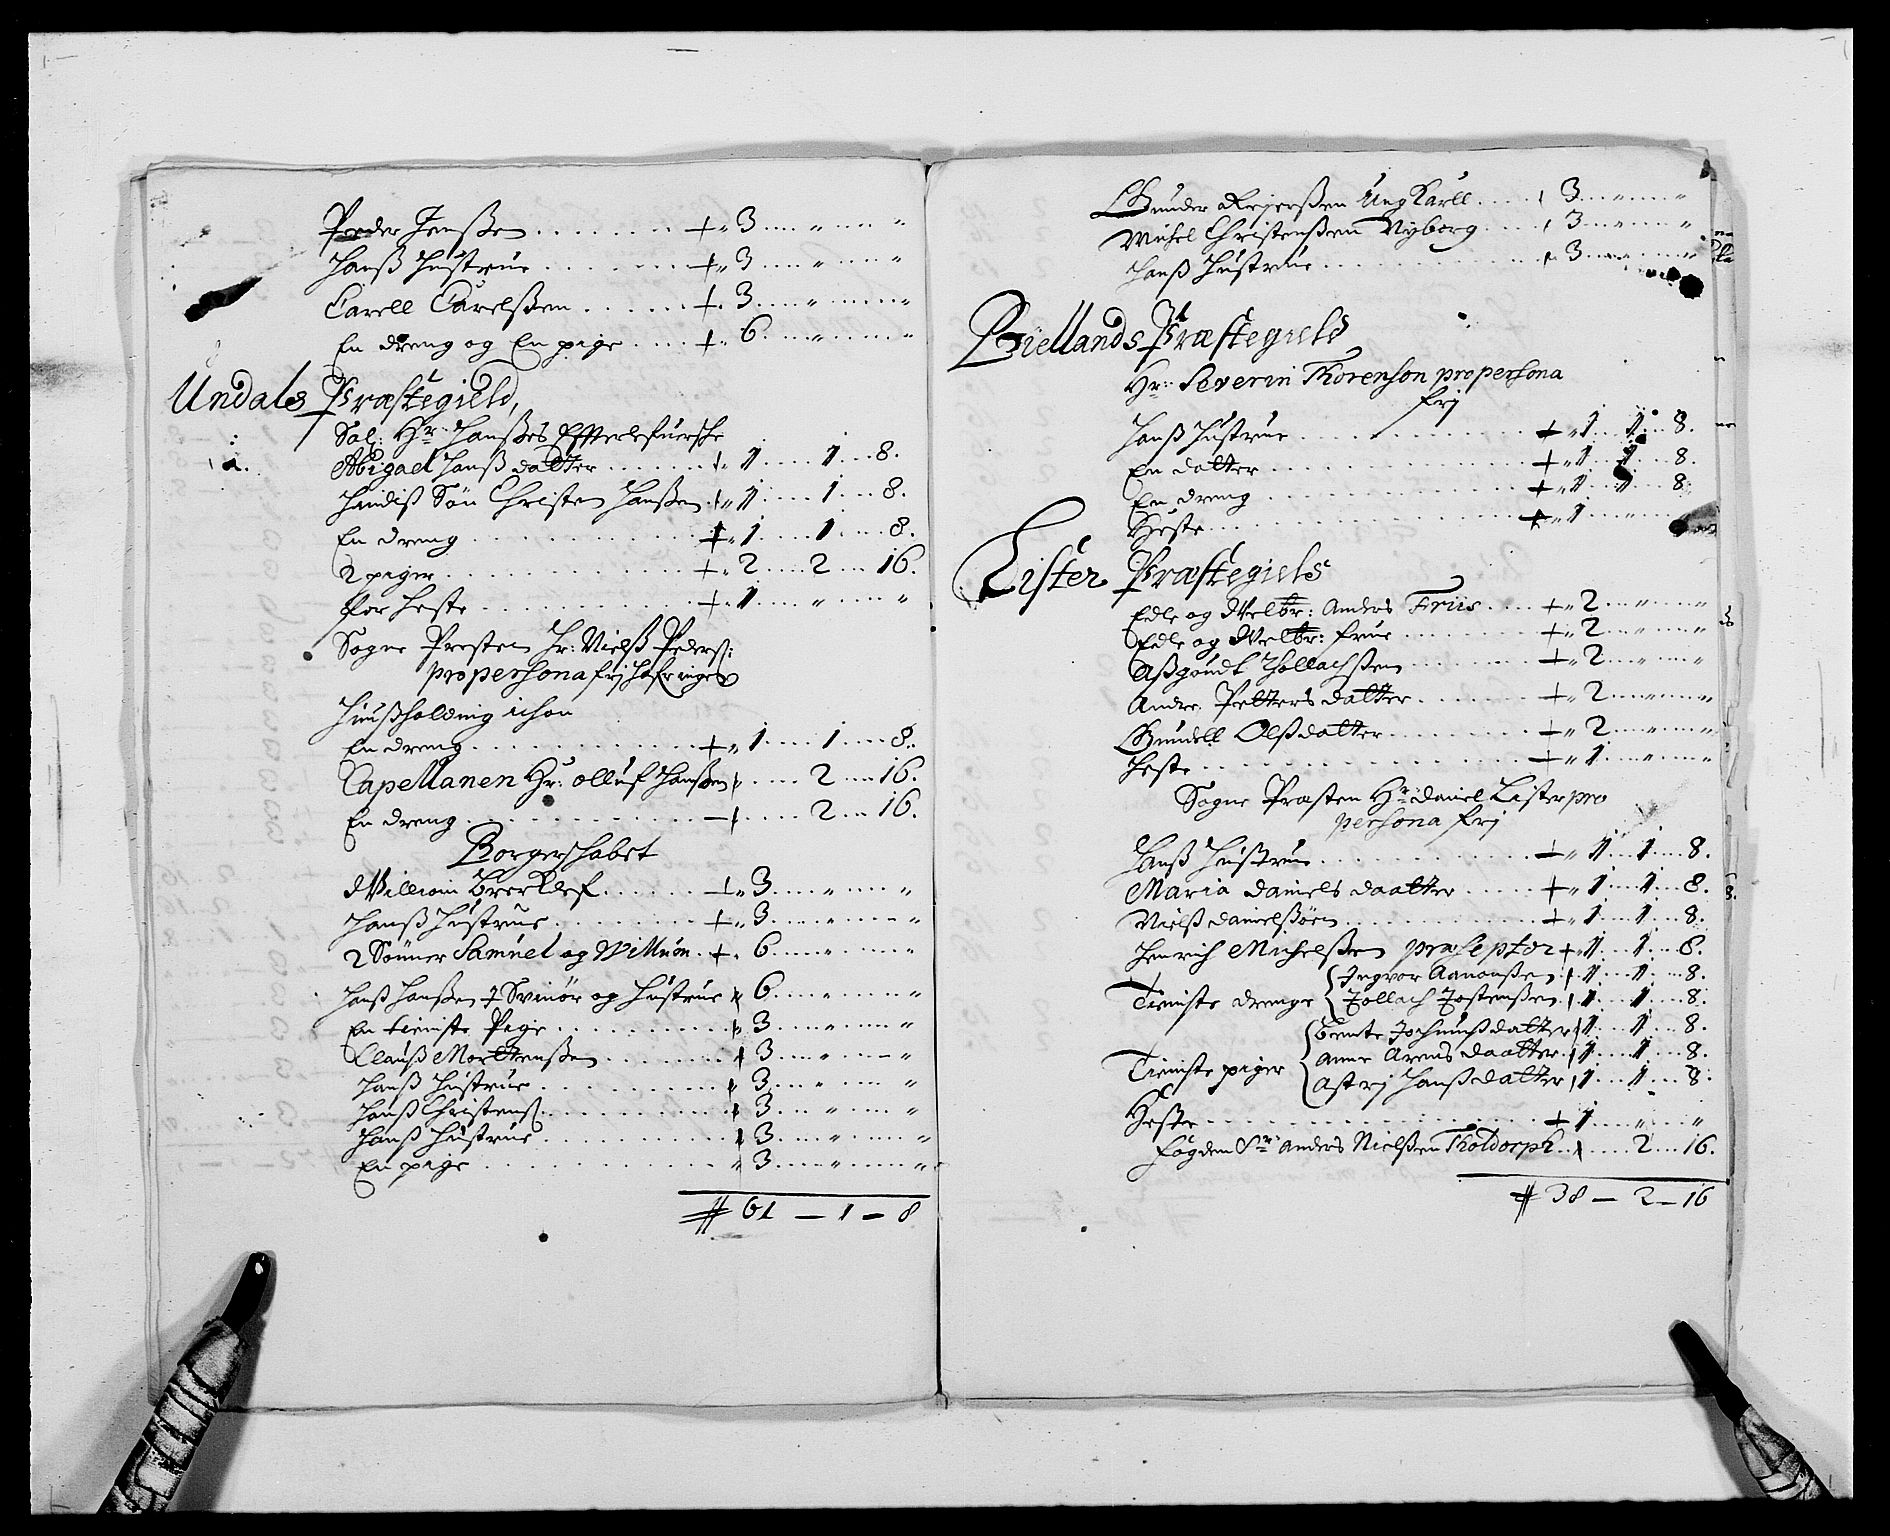 Peder Jenßen + „ 3 „ „
Hanß Hustrue + „ 3 „ „
Carell Carelßen + „ 3 „ „
En dreng og En pige + „ 6 „ „
Undals Præstegield,
Sal: Hr: Hanßes Effterlefuersche
Abigael Hanßdatter + „ 1 1 8.
Hindis Søn Christen Hanßen + „ 1 1 8.
En dreng + „ 1 1 8.
2 piger + „ 2 2 16.
For Heste + „ 1 „ „
Sogne Presten Hr: Nielß Peders:
pro persona frj
Huußholding
En dreng + „ 1 1 8.
Capellanen Hr: olluf Hanßen 2 16.
En dreng 2 16.
Borgerschabet
Willum + „ 3 „ „
Hanß Hustrue + „ 3 „ „
2 Sønner Samuel og Willum + „ 6 „ „
Hanß Hanßen I Svinør og Hustrue 6 „ „
En tieniste Pige 3 „ „
Clauß Morttenßen 3 „ „
Hanß Hustrue 3 „ „
Hanß Christenß 3 „ „
Hanß Hustrue 3 „ „
En pige 3 „ „
# 61 — 1 — 8
Gunder Ung Karll 3 „ „
Michel Christenßen Nyborg 3 „ „
Hanß Hustrue 3 „ „
Biellands Præstegield
Hr: Severin Thorenson pro persona
frj
Hanß Hustrue + „ 1 1 8.
En datter + „ 1 1 8.
En dreng + „ 1 1 8.
Heste + „ 1 „
Lister Præstegield
Edle og Velbr: Anders Friis + „ 2 „ „
Edle og Velbr: frue + „ 2 „ „
Aßgoudt Tollachßen + „ 2 „ „
Andre Petters datter + „ 2 „ „
Gundell Olßdatter + „ 2 „ „
Heste + „ 1 „ „
Sogne Præsten Hr: Daniel Lister pro
persona frj
Hanß Hustrue + „ 1 1 8.
Maria Daniels daatter + „ 1 1 8.
Nielß Danielßøen + „ 1 1 8.
Henrich Michelßen præseptor + „ 1 1 8.
Tieniste drenge { Ingvor Aanonßen 1 1 8.
Tollach Jostenßen 1 1 8.
Tieniste piger { Bente Jochumßdatter 1 1 8.
Anne Arens daatter 1 1 8.
Astrj Hanßdatter 1 1 8.
Heste + 1 „ „
Fogden Sr: Anders Nielßen Tholdorph 2 16.
# 38 — 2 — 16